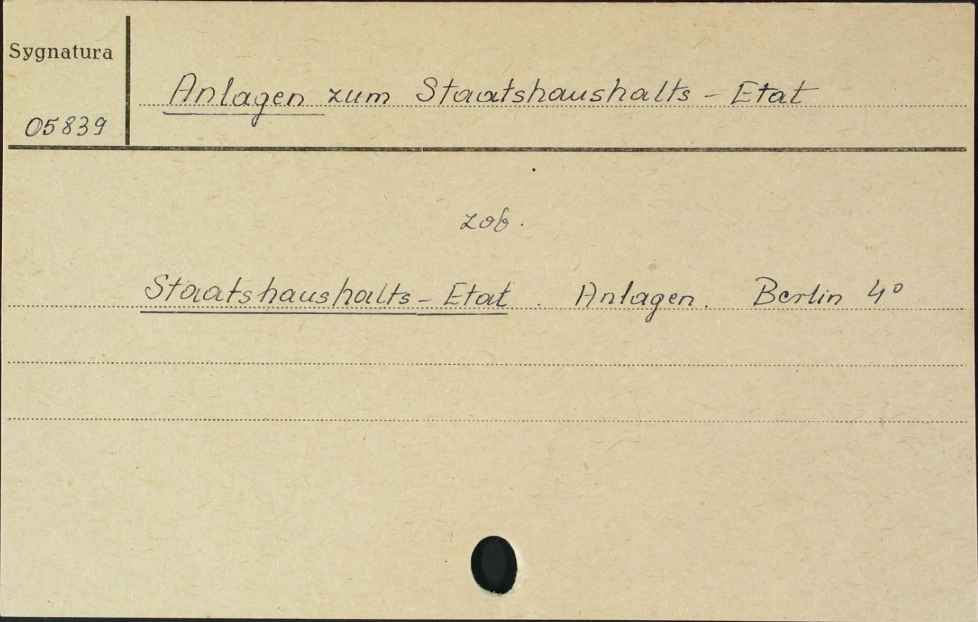 Sygnatura
Anlagen zum Staatshaushalts - Etat
05839
zob.
Staatshaushalts - Etat. Anlagen. Berlin 4°